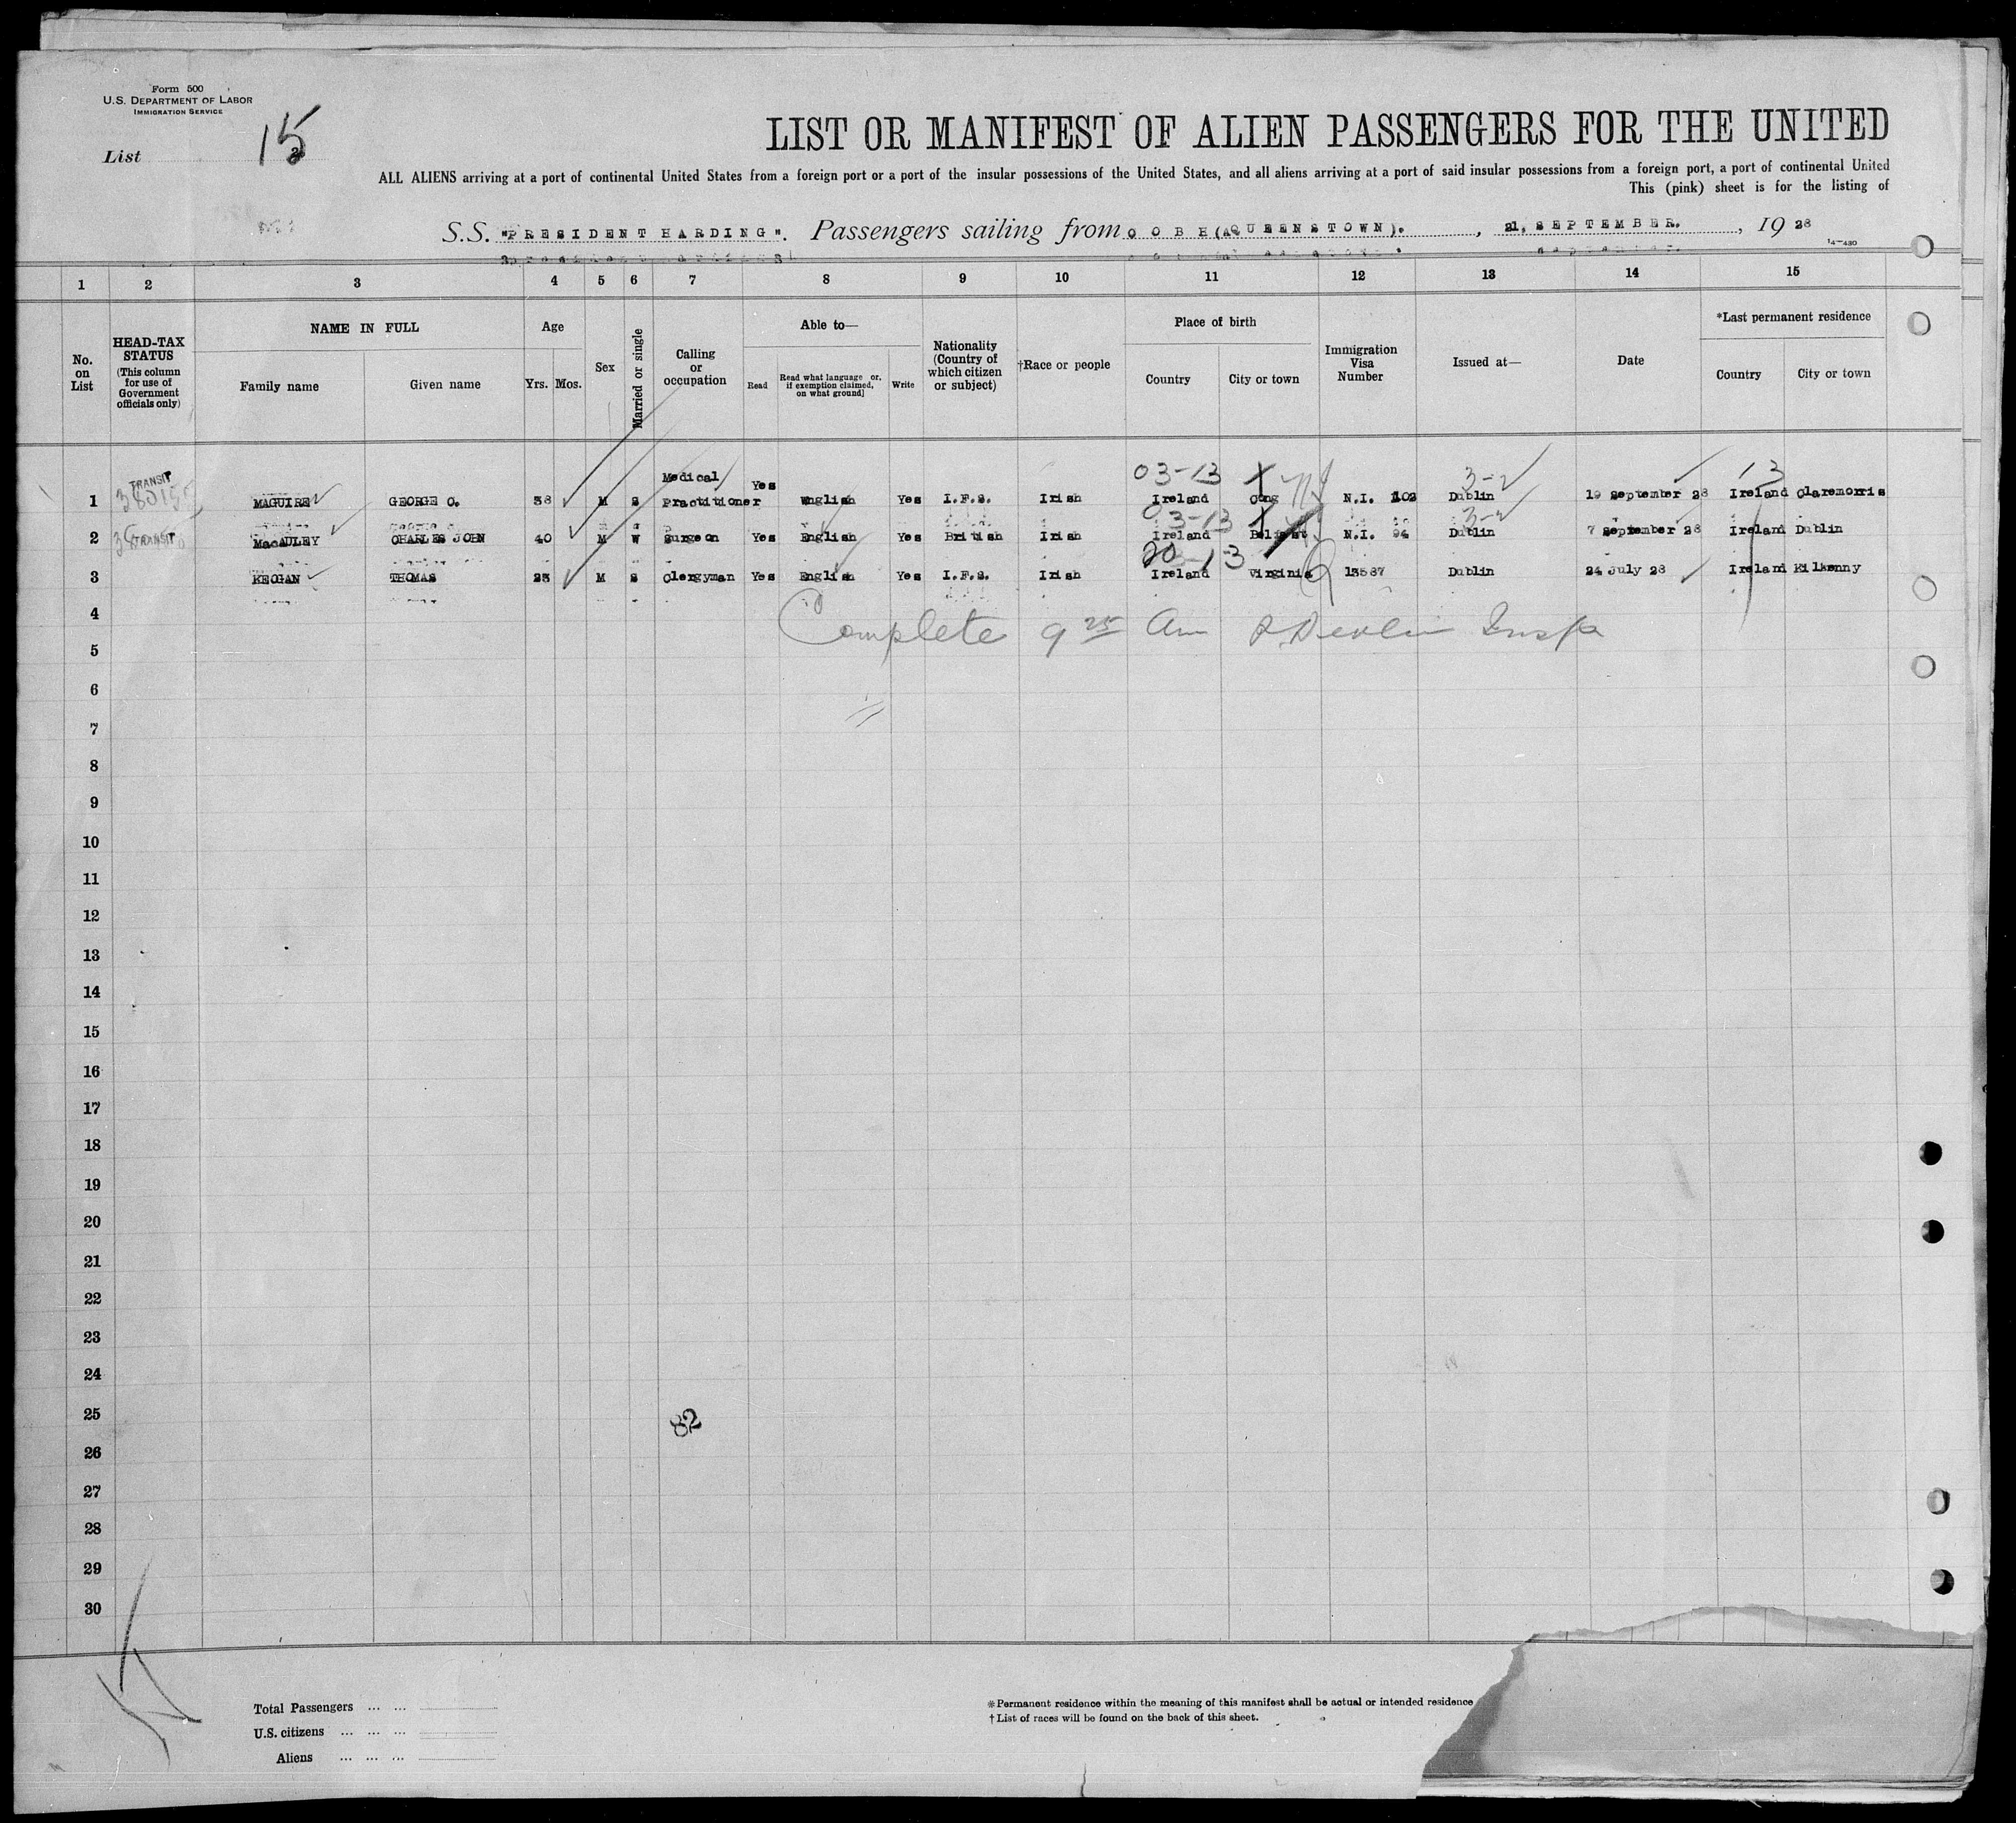 Form 500
U.S. DEPARTMENT OF LABOR
IMMIGRATION SERVICE
List 15
LIST OR MANIFEST OF ALIEN PASSENGERS FOR THE UNITED
ALL ALIENS arriving at a port of continental United States from a foreign port or a port of the insular possessions of the United States, and all aliens arriving at a port of said insular possessions from a foreign port, a port of continental United
This (pink) sheet is for the listing of
S.S. "PRESIDENT HARDING". Passengers sailing from COBH (QUEENSTOWN)., 21, SEPTEMBER., 1928
14-430
1 2 3 4 5 6 7 8 9 10 11 12 13 14 15
No. on List
HEAD-TAX STATUS (This column for use of Government officials only)
NAME IN FULL
Family name Given name
Age
Yrs. Mos.
Sex
Married or single
Calling or occupation
Able to—
Read Read what language or, if exemption claimed, on what ground] Write
Nationality (Country of which citizen or subject)
†Race or people
Place of birth
Country City or town
Immigration Visa Number
Issued at—
Date
*Last permanent residence
Country City or town
TRANSIT 03-13 3-2 13
1 MAGUIRE GEORGE C. 38 M S Medical Practitioner Yes English Yes I.F.S. Irish Ireland Cong N.I. 102 Dublin 19 September 28 Ireland Claremorris
TRANSIT 03-13 3-2
2 MacAULEY CHARLES JOHN 40 M W Surgeon Yes English Yes British Irish Ireland Belfast N.I. 94 Dublin 7 September 28 Ireland Dublin
3 KEOGAN THOMAS 23 M S Clergyman Yes English Yes I.F.S. Irish Ireland Virginia 13587 Dublin 24 July 28 Ireland Kilkenny
4
Complete 9 25 Am Devlin Insp
5
6
7
8
9
10
11
12
13
14
15
16
17
18
19
20
21
22
23
24
25
82
26
27
28
29
30
Total Passengers ... ...
U.S. citizens ... ... ...
Aliens ... ... ...
*Permanent residence within the meaning of this manifest shall be actual or intended residence
†List of races will be found on the back of this sheet.